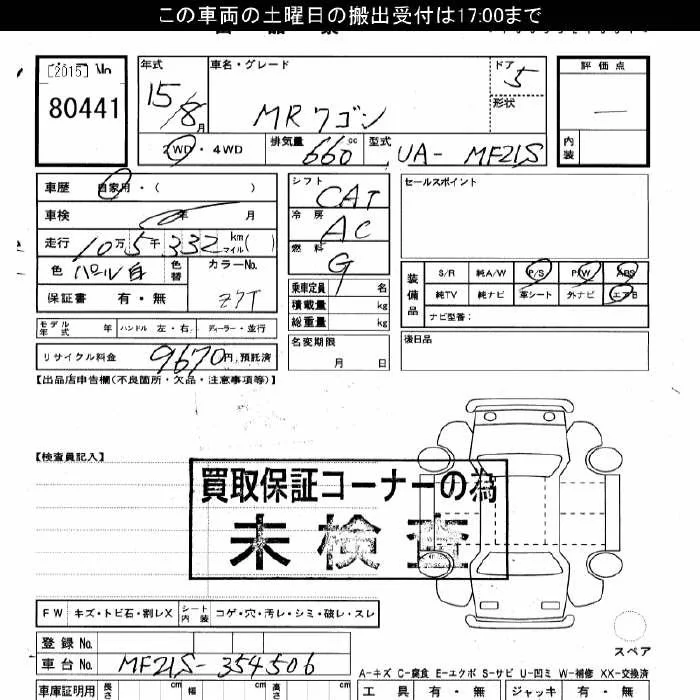 この車両の土曜日の搬出受付は17:00まで
[2015] No
80441
年式 15/8月
車名・グレード MRワゴン
ドア 5
形状
評価点 —
内装
2WD・4WD 排気量 660cc 型式 UA- MF21S
車歴 自家用・( )
車検 年 月
走行 10万5千332km マイル( )
色 パール白 色替 カラーNo. Z7T
保証書 有・無
シフト CAT
冷房 AC
燃料 G
乗車定員 名
積載量 kg
総重量 kg
セールスポイント
装備品 S/R 純A/W P/S P/W ABS
純TV 純ナビ 革シート 外ナビ エアB
ナビ型番:
モデル年式 年 ハンドル 左・右 ディーラー・並行
リサイクル料金 9670円,預託済
名変期限 月 日
後日品
【出品店申告欄(不良箇所・欠品・注意事項等)】
【検査員記入】
買取保証コーナーの為
未検査
FW キズ・トビ石・割レX シート内装 コゲ・穴・汚レ・シミ・破レ・スレ
登録No.
車台No. MF21S-354506
スペア
A-キズ C-腐食 E-エクボ S-サビ U-凹ミ W-補修 XX-交換済
車庫証明用 長さ cm 幅 cm 高さ cm
工具 有・無 ジャッキ 有・無